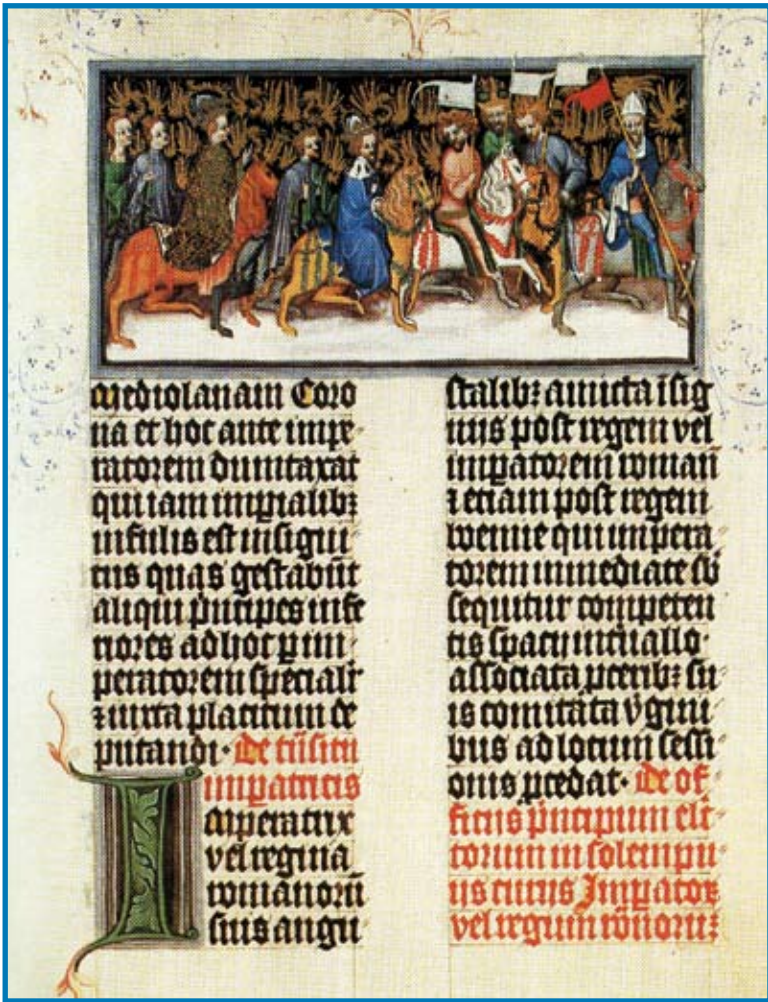 mediolanam Coro
na et hoc ante impe
ratorem dumtaxat
qui iam imꝑialibꝫ
infulis est insigni
tus quas gestabūt
aliqui pͥncipes infe
riores ad hoc ꝑ im
peratorem specialiꝛ
⁊ iuxta placitum de
putandi. De tͣnsitu
imꝑatricis
Imperatrix
vel regina
romanorū
suis augu
stalibꝫ amicta īsig
niis post regem vel
imꝑatorem romanū
⁊ etiam post regem
boemie qui impera
torem immediate sb̄
sequitur competen
tis spacii int̄uallo
associata ꝓceribꝫ su
is comitata v̄gini
bus ad locum sessi
onis ꝓcedat. De of
ficiis pͥncipum elc̄
torum in solempni
is curiis Imꝑatoꝝ
vel regum rōnoꝝ